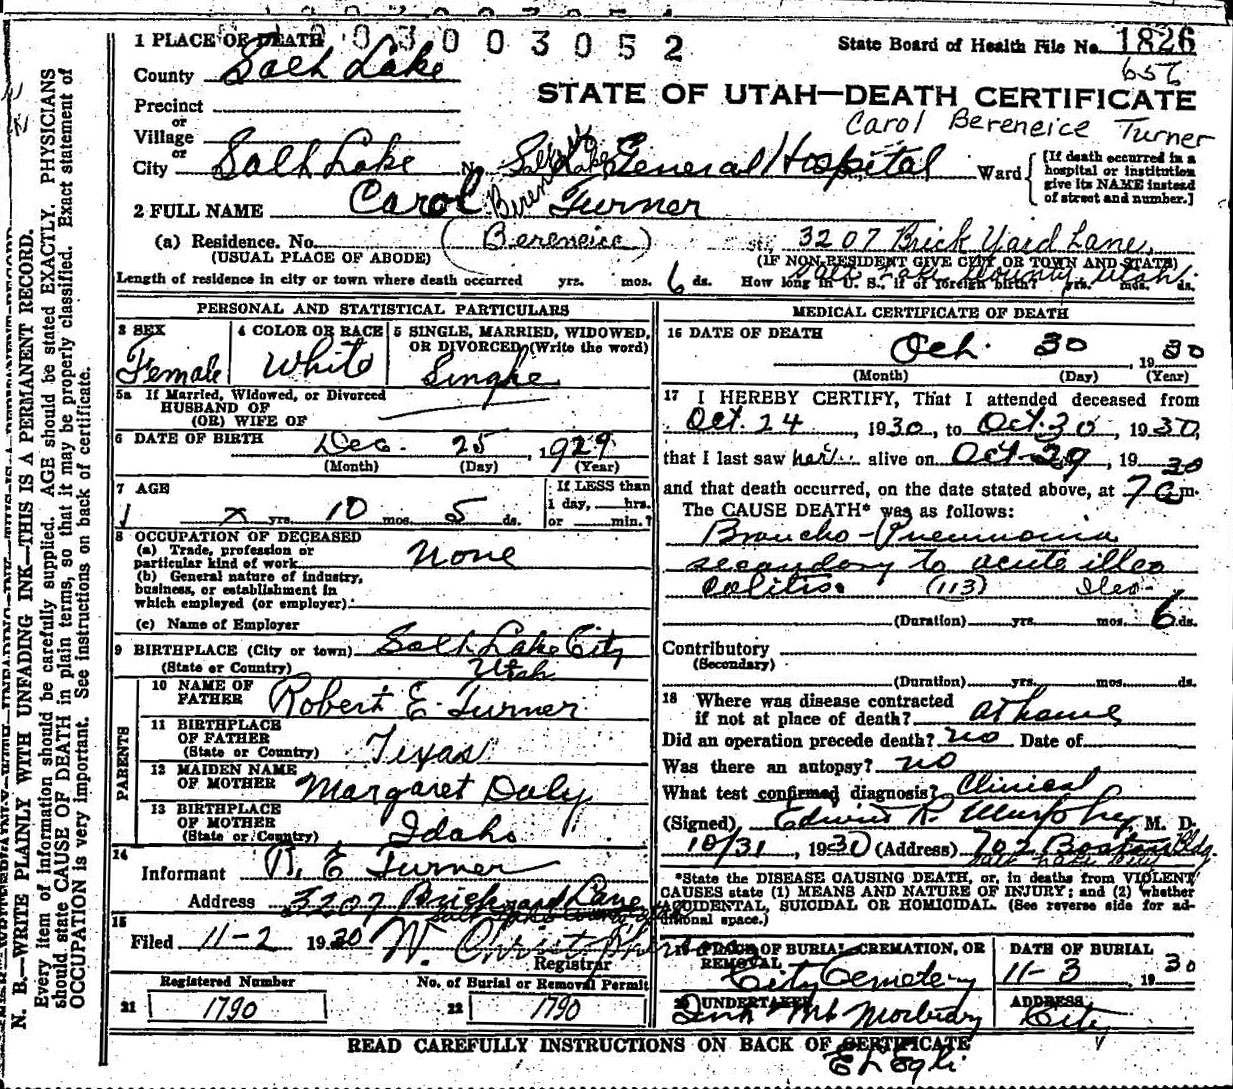 1 PLACE OF DEATH
003003052
State Board of Health File No. 1826
656
County Salt Lake
STATE OF UTAH—DEATH CERTIFICATE
Carol Bereneice Turner
Precinct
or
Village
or
City Salt Lake No. Salt Lake General Hospital Ward
[If death occurred in a hospital or institution give its NAME instead of street and number.]
2 FULL NAME Carol Turner
(Bereneice)
(a) Residence. No. st. 3207 Brick Yard Lane,
(USUAL PLACE OF ABODE)
(IF NON-RESIDENT GIVE CITY OR TOWN AND STATE)
Salt Lake County, Utah
Length of residence in city or town where death occurred yrs. mos. 6 ds. How long in U. S., if of foreign birth? yrs. mos. ds.
PERSONAL AND STATISTICAL PARTICULARS
3 SEX Female
4 COLOR OR RACE White
5 SINGLE, MARRIED, WIDOWED, OR DIVORCED (Write the word) Single
5a If Married, Widowed, or Divorced
HUSBAND OF
(OR) WIFE OF
6 DATE OF BIRTH Dec. 25, 1929
(Month) (Day) (Year)
7 AGE x yrs. 10 mos. 5 ds.
If LESS than 1 day, hrs. or min.?
8 OCCUPATION OF DECEASED
(a) Trade, profession or particular kind of work None
(b) General nature of industry, business, or establishment in which employed (or employer)
(c) Name of Employer
9 BIRTHPLACE (City or town) Salt Lake City
(State or Country) Utah
PARENTS
10 NAME OF FATHER Robert E. Turner
11 BIRTHPLACE OF FATHER (State or Country) Texas
12 MAIDEN NAME OF MOTHER Margaret Daly
13 BIRTHPLACE OF MOTHER (State or Country) Idaho
14 Informant R. E Turner
Address 3207 Brickyard Lane
15 Filed 11-2 1930
Registrar
Registered Number
21 1790
No. of Burial or Removal Permit
22 1790
MEDICAL CERTIFICATE OF DEATH
16 DATE OF DEATH Oct. 30, 1930
(Month) (Day) (Year)
17 I HEREBY CERTIFY, That I attended deceased from
Oct. 24, 1930, to Oct. 30, 1930,
that I last saw her alive on Oct-29, 1930
and that death occurred, on the date stated above, at 7 a m.
The CAUSE DEATH* was as follows:
Broncho-Pneumonia
secondary to acute illeo
colitis. (113) Ileo-
(Duration) yrs. mos. 6 ds.
Contributory
(Secondary)
(Duration) yrs. mos. ds.
18 Where was disease contracted
if not at place of death? at home
Did an operation precede death? no Date of
Was there an autopsy? no
What test confirmed diagnosis? Clinical
(Signed) Edwin R. Murphy, M. D.
10/31, 1930 (Address) 702 Boston Bldg.
Salt Lake City
*State the DISEASE CAUSING DEATH, or, in deaths from VIOLENT
CAUSES state (1) MEANS AND NATURE OF INJURY; and (2) whether
ACCIDENTAL, SUICIDAL OR HOMICIDAL. (See reverse side for additional space.)
19 PLACE OF BURIAL, CREMATION, OR REMOVAL City Cemetery
DATE OF BURIAL 11-3 1930
20 UNDERTAKER
ADDRESS City
READ CAREFULLY INSTRUCTIONS ON BACK OF CERTIFICATE
N. B.—WRITE PLAINLY WITH UNFADING INK—THIS IS A PERMANENT RECORD.
Every item of information should be carefully supplied. AGE should be stated EXACTLY. PHYSICIANS
should state CAUSE OF DEATH in plain terms, so that it may be properly classified. Exact statement of
OCCUPATION is very important. See instructions on back of certificate.